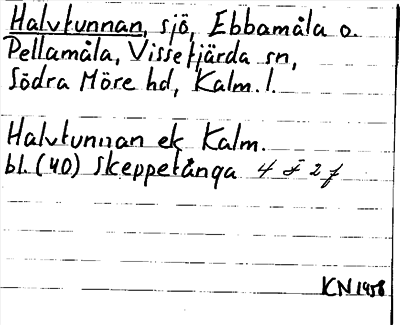 Halvtunnan, sjö, Ebbamåla o.
Pellamåla, Vissefjärda sn,
Södra Möre hd, Kalm. l.
Halvtunnan ek Kalm.
bl. (40) Skeppetånga 4 F 2 f
KN 1958